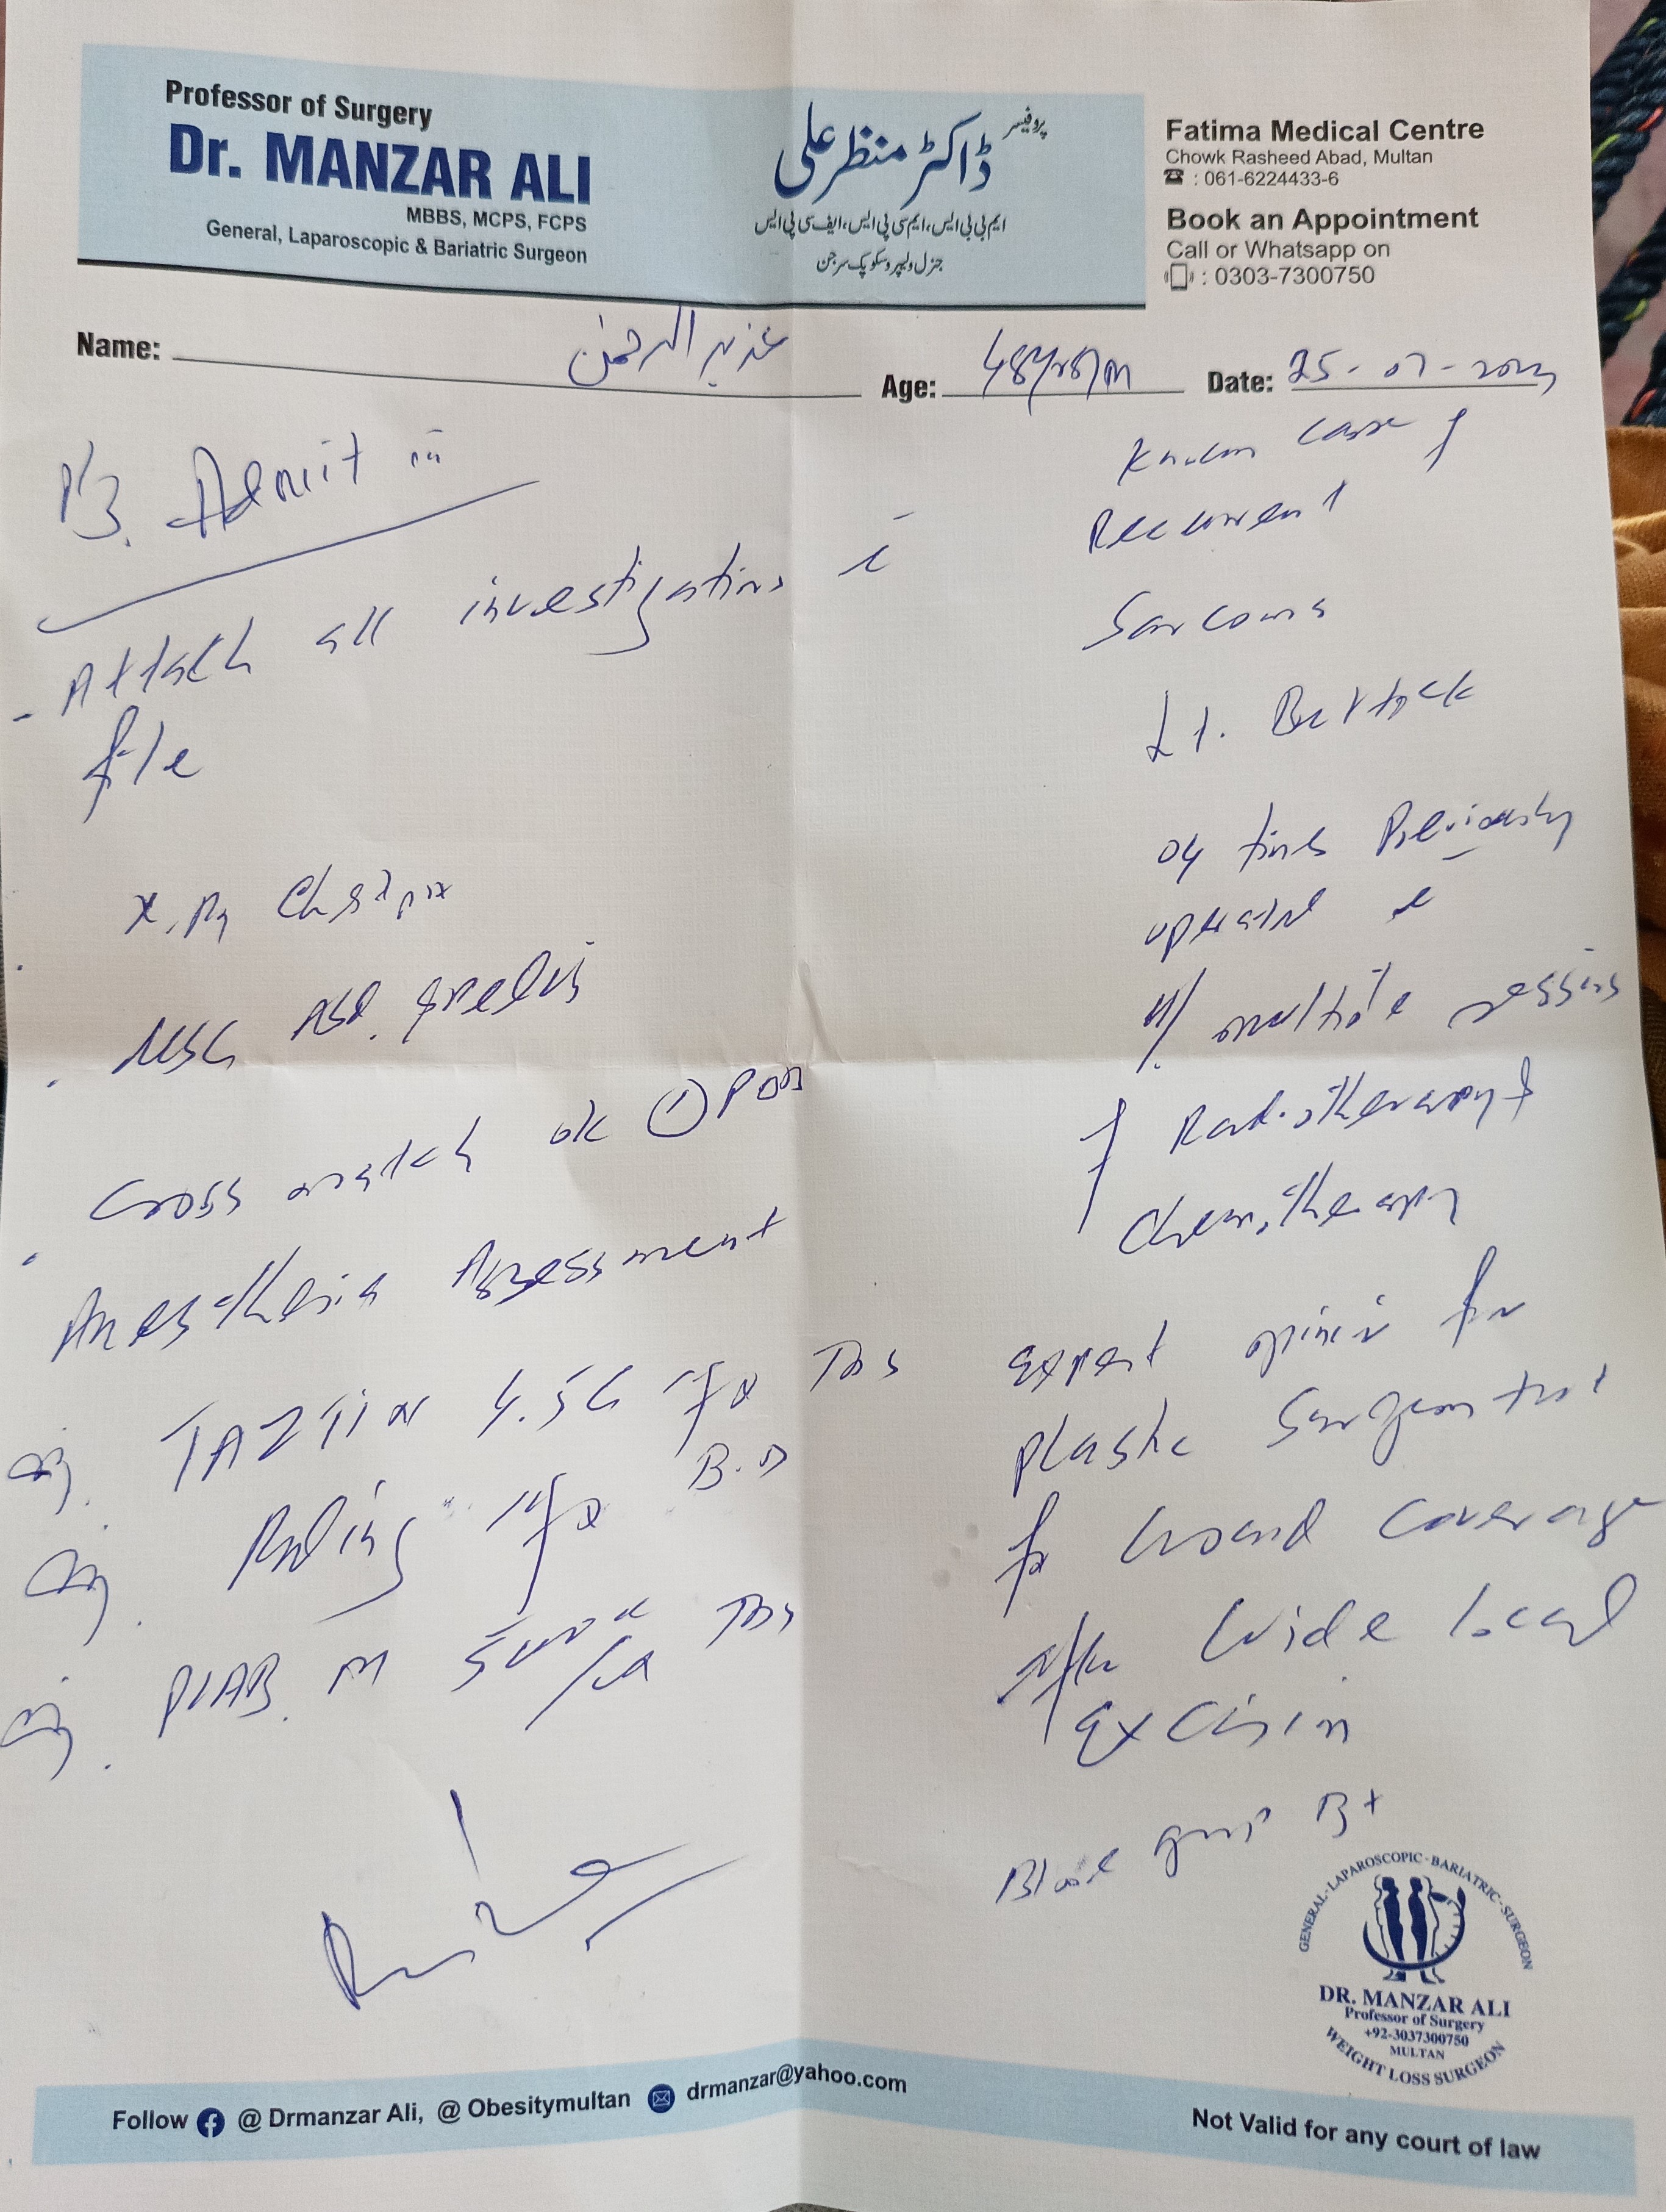 Professor of Surgery
Dr. MANZAR ALI
MBBS, MCPS, FCPS
General, Laparoscopic & Bariatric Surgeon
پروفیسر
ڈاکٹر منظر علی
ایم بی بی ایس، ایم سی پی ایس، ایف سی پی ایس
جنرل ولیپروسکوپک سرجن
Fatima Medical Centre
Chowk Rasheed Abad, Multan
: 061-6224433-6
Book an Appointment
Call or Whatsapp on
: 0303-7300750
Name: عزیز الرحمٰن Age: 48yrs/m Date: 25-07-
Admit in
- Attach all investigations c̄
file
X.Ray Chest
USG Abd. Pelvis
Cross match
Anesthesia Assessment
TAZTIN 4.5G TDS
B.D
TDS
Known case of
Recurrent
Sarcoma
Lt. Buttock
04 times Previously
operated
multiple sessions
of Radiotherapy +
Chemotherapy
expert opinion for
plastic Surgeon
for wound coverage
Wide local
Excision
Blood group B+
GENERAL - LAPAROSCOPIC - BARIATRIC - SURGEON
DR. MANZAR ALI
Professor of Surgery
+92-3037300750
MULTAN
WEIGHT LOSS SURGEON
Follow @ Drmanzar Ali, @ Obesitymultan drmanzar@yahoo.com
Not Valid for any court of law